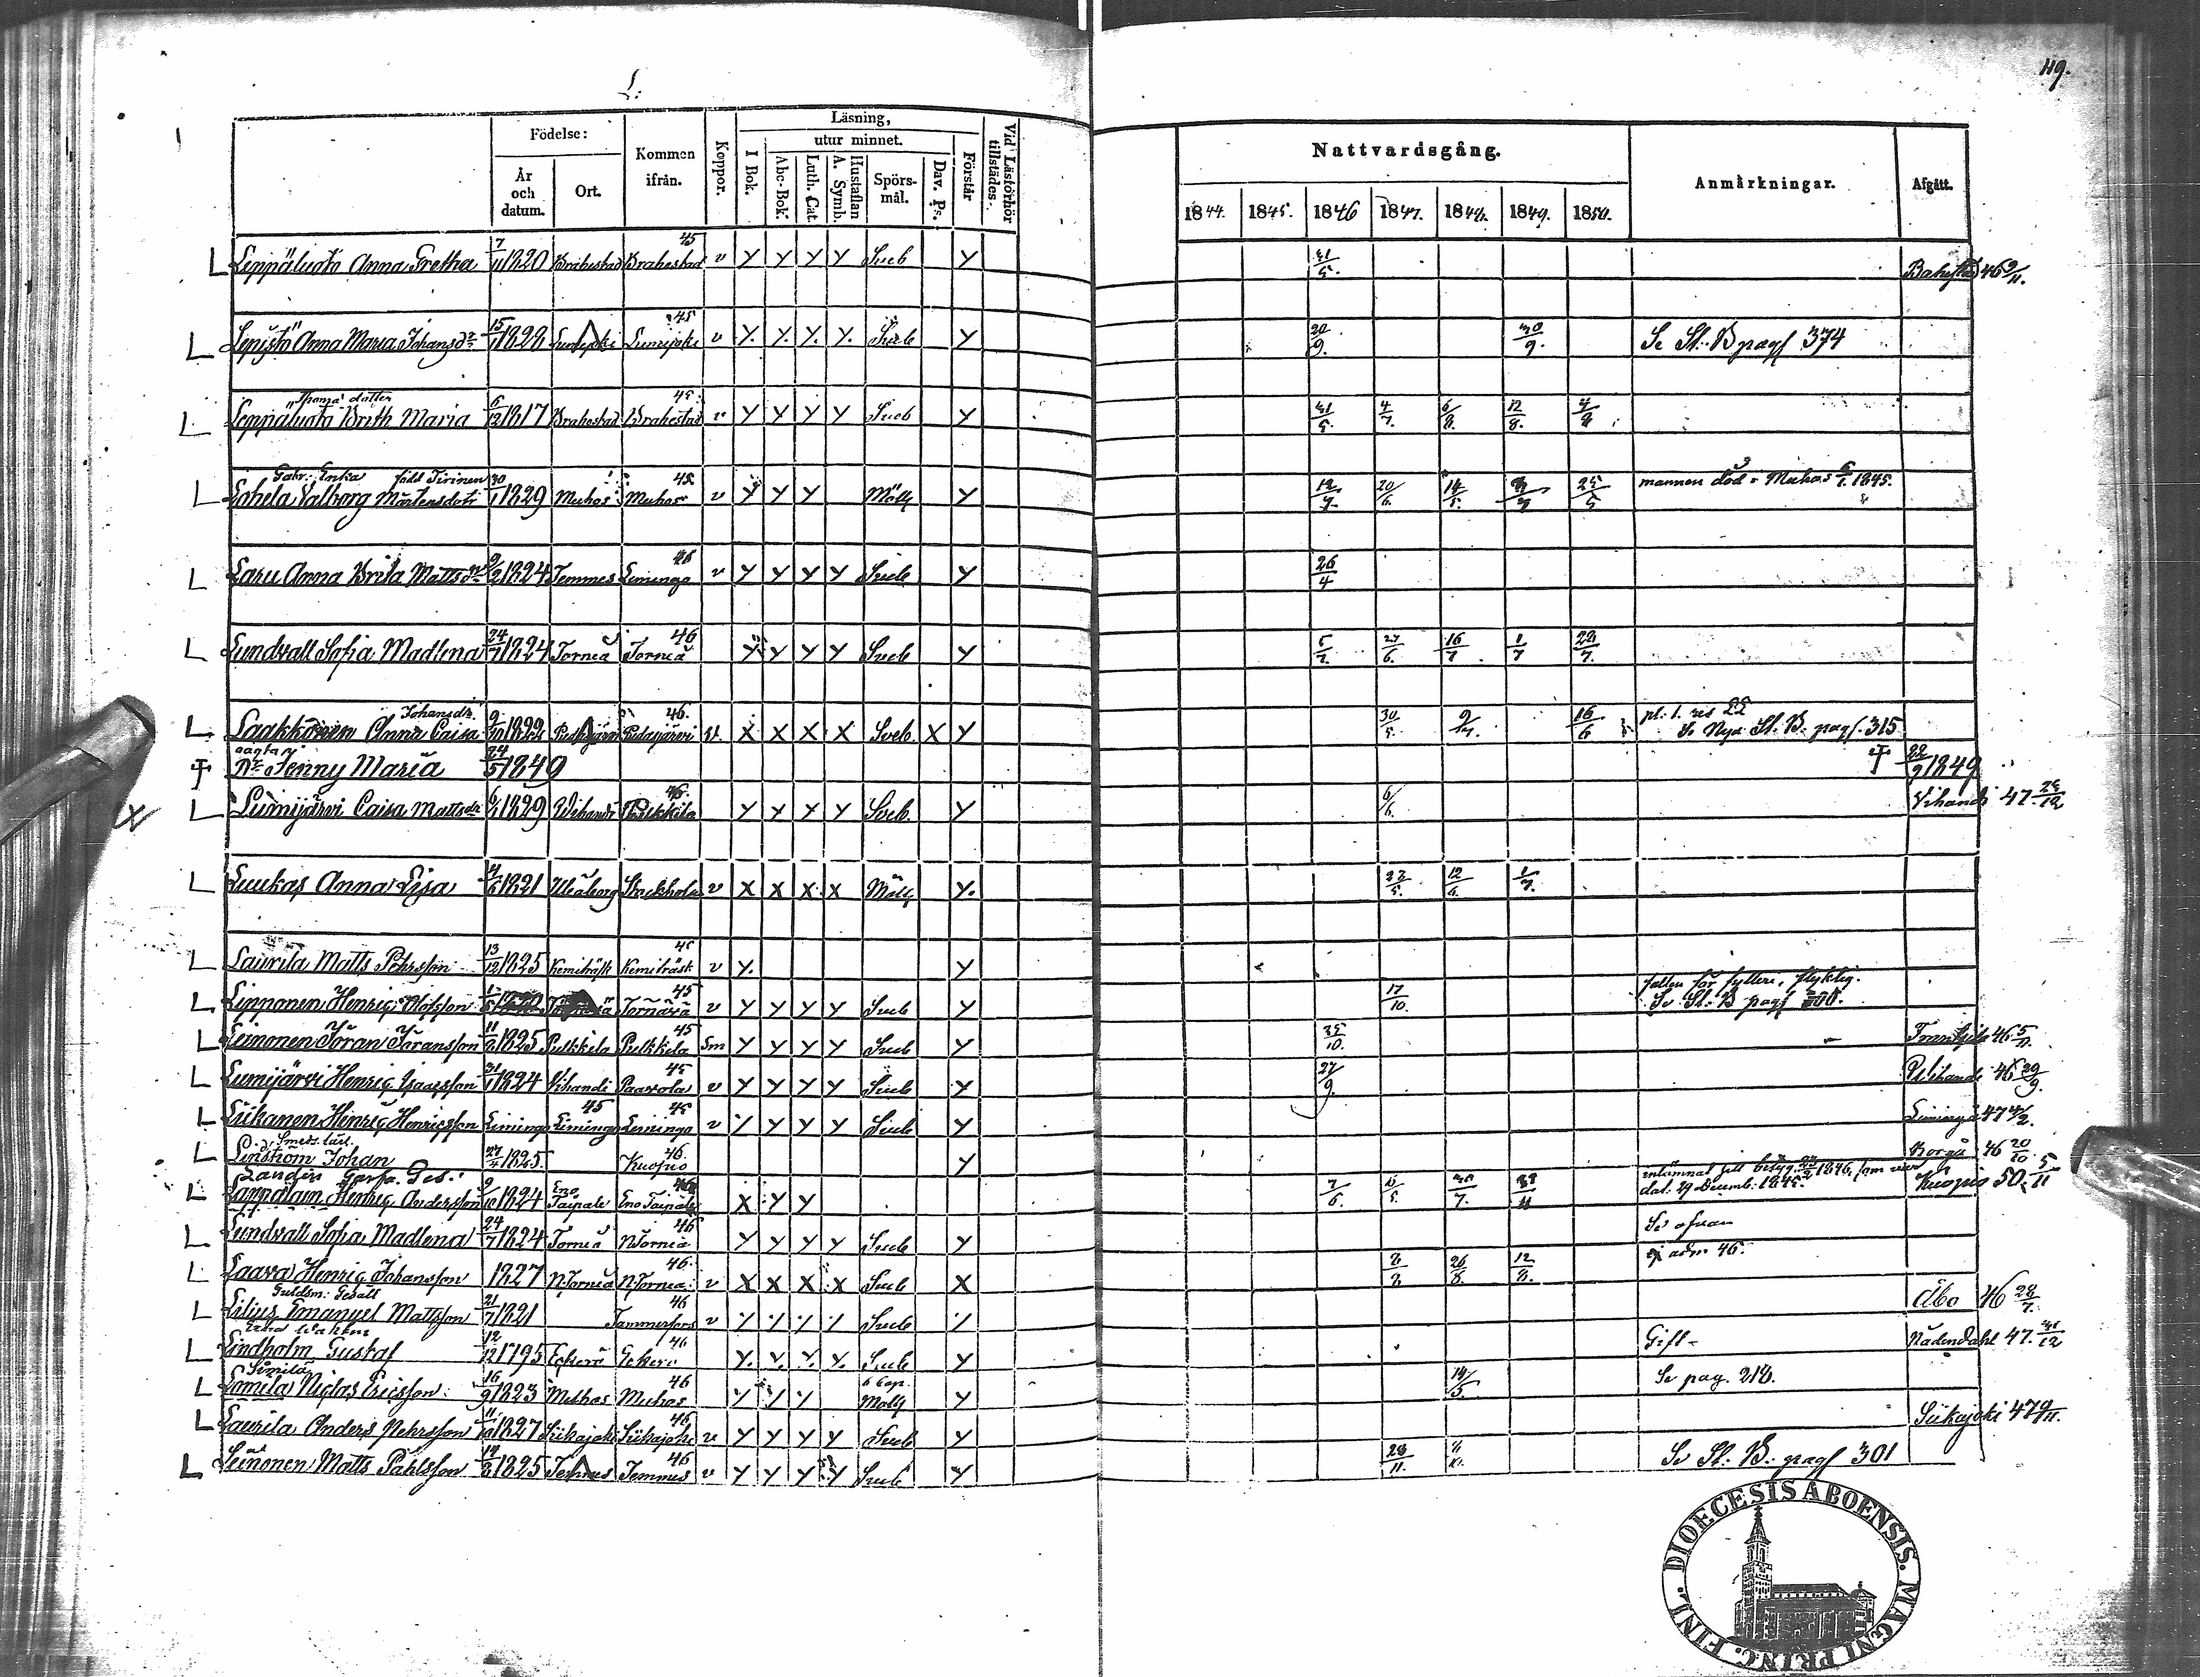 L:
119.
Födelse:
År och datum.
Ort.
Kommen ifrån.
Koppor.
Läsning,
I Bok.
utur minnet.
Abc-Bok.
Luth. Cat.
Hustaflan A. Symb.
Spörs-mål.
Dav. Ps.
Förstår
Vid Läsförhör tillstädes.
Nattvardsgång.
1844. 1845. 1846 1847. 1848. 1849. 1850.
Anmärkningar.
Afgått.
L Leppäluoto Anna Gretha 7/11 1820 Brahestad Brahestad 45 v y y y y Sveb y 31/5. 46 9/11.
L Lepistö Anna Maria Johansdr 15/1 1828 Lumijoki Lumijoki 45 v y. y. y. y. Sveb y 20/9. 30/9. Se St. B pag 374
L Leppäluoto Brith Maria 6/12 1817 Brahestad Brahestad 45 v y y y y Sveb y 31/5. 4/7. 6/8. 12/8.
Gabr: Enka född Tirinen
L Lohela Valborg Mårtensdotr 30/1 1829 Muhos Muhos 45 v y y y Möll 12/7. 20/6. 14/5. 25/5
mannen död i Muhos 1845.
L Laru Anna Brita Mattsdr 9/2 1824 Temmes Limingo 46 v y y y y Sveb y 26/4
L Lundvall Sofia Madlena 24/7 1824 Torneå Torneå 46 y y y y Sveb y 5/7. 27/6. 16/7 1/7 28/7.
Johansdr.
L Laakkonen Anna Caisa 9/10 1822 Pudasjärvi Pudasjärvi 46. X X X X Sveb X y 30/5. 9/7. 16/6
Se Nya St. B. pag. 315
oägta
Dr Jenny Maria 24/5 1849 22/9 1849
L Lumijärvi Caisa Mattsdr 6/1 1829 Vihandi Pulkkila 46. y y y y Sveb. y 6/6. Vihandi 47. 28/12
L Luukas Anna Lisa 4/6 1821 Uleåborg Stockholm v X X X X Möll y. 23/5. 12/6. 1/7.
L Laurila Matts Pehrsson 13/12 1825 Kemiträsk Kemiträsk 45 v y. y
L Lipponen Henric Olofsson Tornävä 45 v y y y y Sveb y 17/10.
fallen för fylleri, flyktig.
Se St. B pag
L Leinonen Jöran Jöransson 11/6 1825 Pulkkila Pulkkila 45 Sm y y y y Sveb y 25/10. Frantsila 46 5/11.
L Lumijärvi Henric Isacsson 31/1 1824 Vihandi Paavola 45 v y y y y Sveb y 27/9. Vihandi 46 29/9.
L Liikanen Henric Henricsson Liminga Liminga 45 Liminga 45 v y y y y Sveb Liminga 47 4/2.
Smeds lärl.
L Lindström Johan 27/4 1825. Kuopio 46. y Borgå 46 20/10.
Landin Garfv. Ges.
L Henric Andersson 9/10 1824 Eno Taipale Eno Taipale 46 X y y 7/6. 6/5. 30/7.
inlämnat sitt betyg 1846, som
dat: 29 Decemb: 1845. Kuopio 50. 5/11
L Lundvall Sofia Madlena 24/7 1824 Torneå N.Torneå 46 y y y y Sveb y Se ofvan
L Laava Henric Johansson 1827 N.Torneå N.Torneå. 46. v X X X X Sveb X 8/8 26/8. 12/8. ej adm 46.
Guldsm: Gesäll
L Lilius Emanuel Mattsson 21/7 1821 Tammerfors 46 v y y y y Sveb y Åbo 46 28/7.
L Lindholm Gustaf 12/12 1795 Eckerö Eckerö 46 y. y. y. y. Sveb y Gift - Nådendahl 47. 31/12
Similä
L Lomila Niclas Ericsson 16/9 1823 Muhos Muhos 46 y y y 6 Cap. Möll y 14/5 Se pag. 218.
L Laurila Anders Pehrsson 11/10 1827 Siikajoki Siikajoki 46 v y y y y Sveb y Siikajoki 47 9/11.
L Leinonen Matts Påhlsson 19/8 1825 Temmes Temmes 46 v y y y y Sveb y 28/11. Se St. B. pag 301
DIOECESIS ABOENSIS. MAGNI PRINC. FINL.